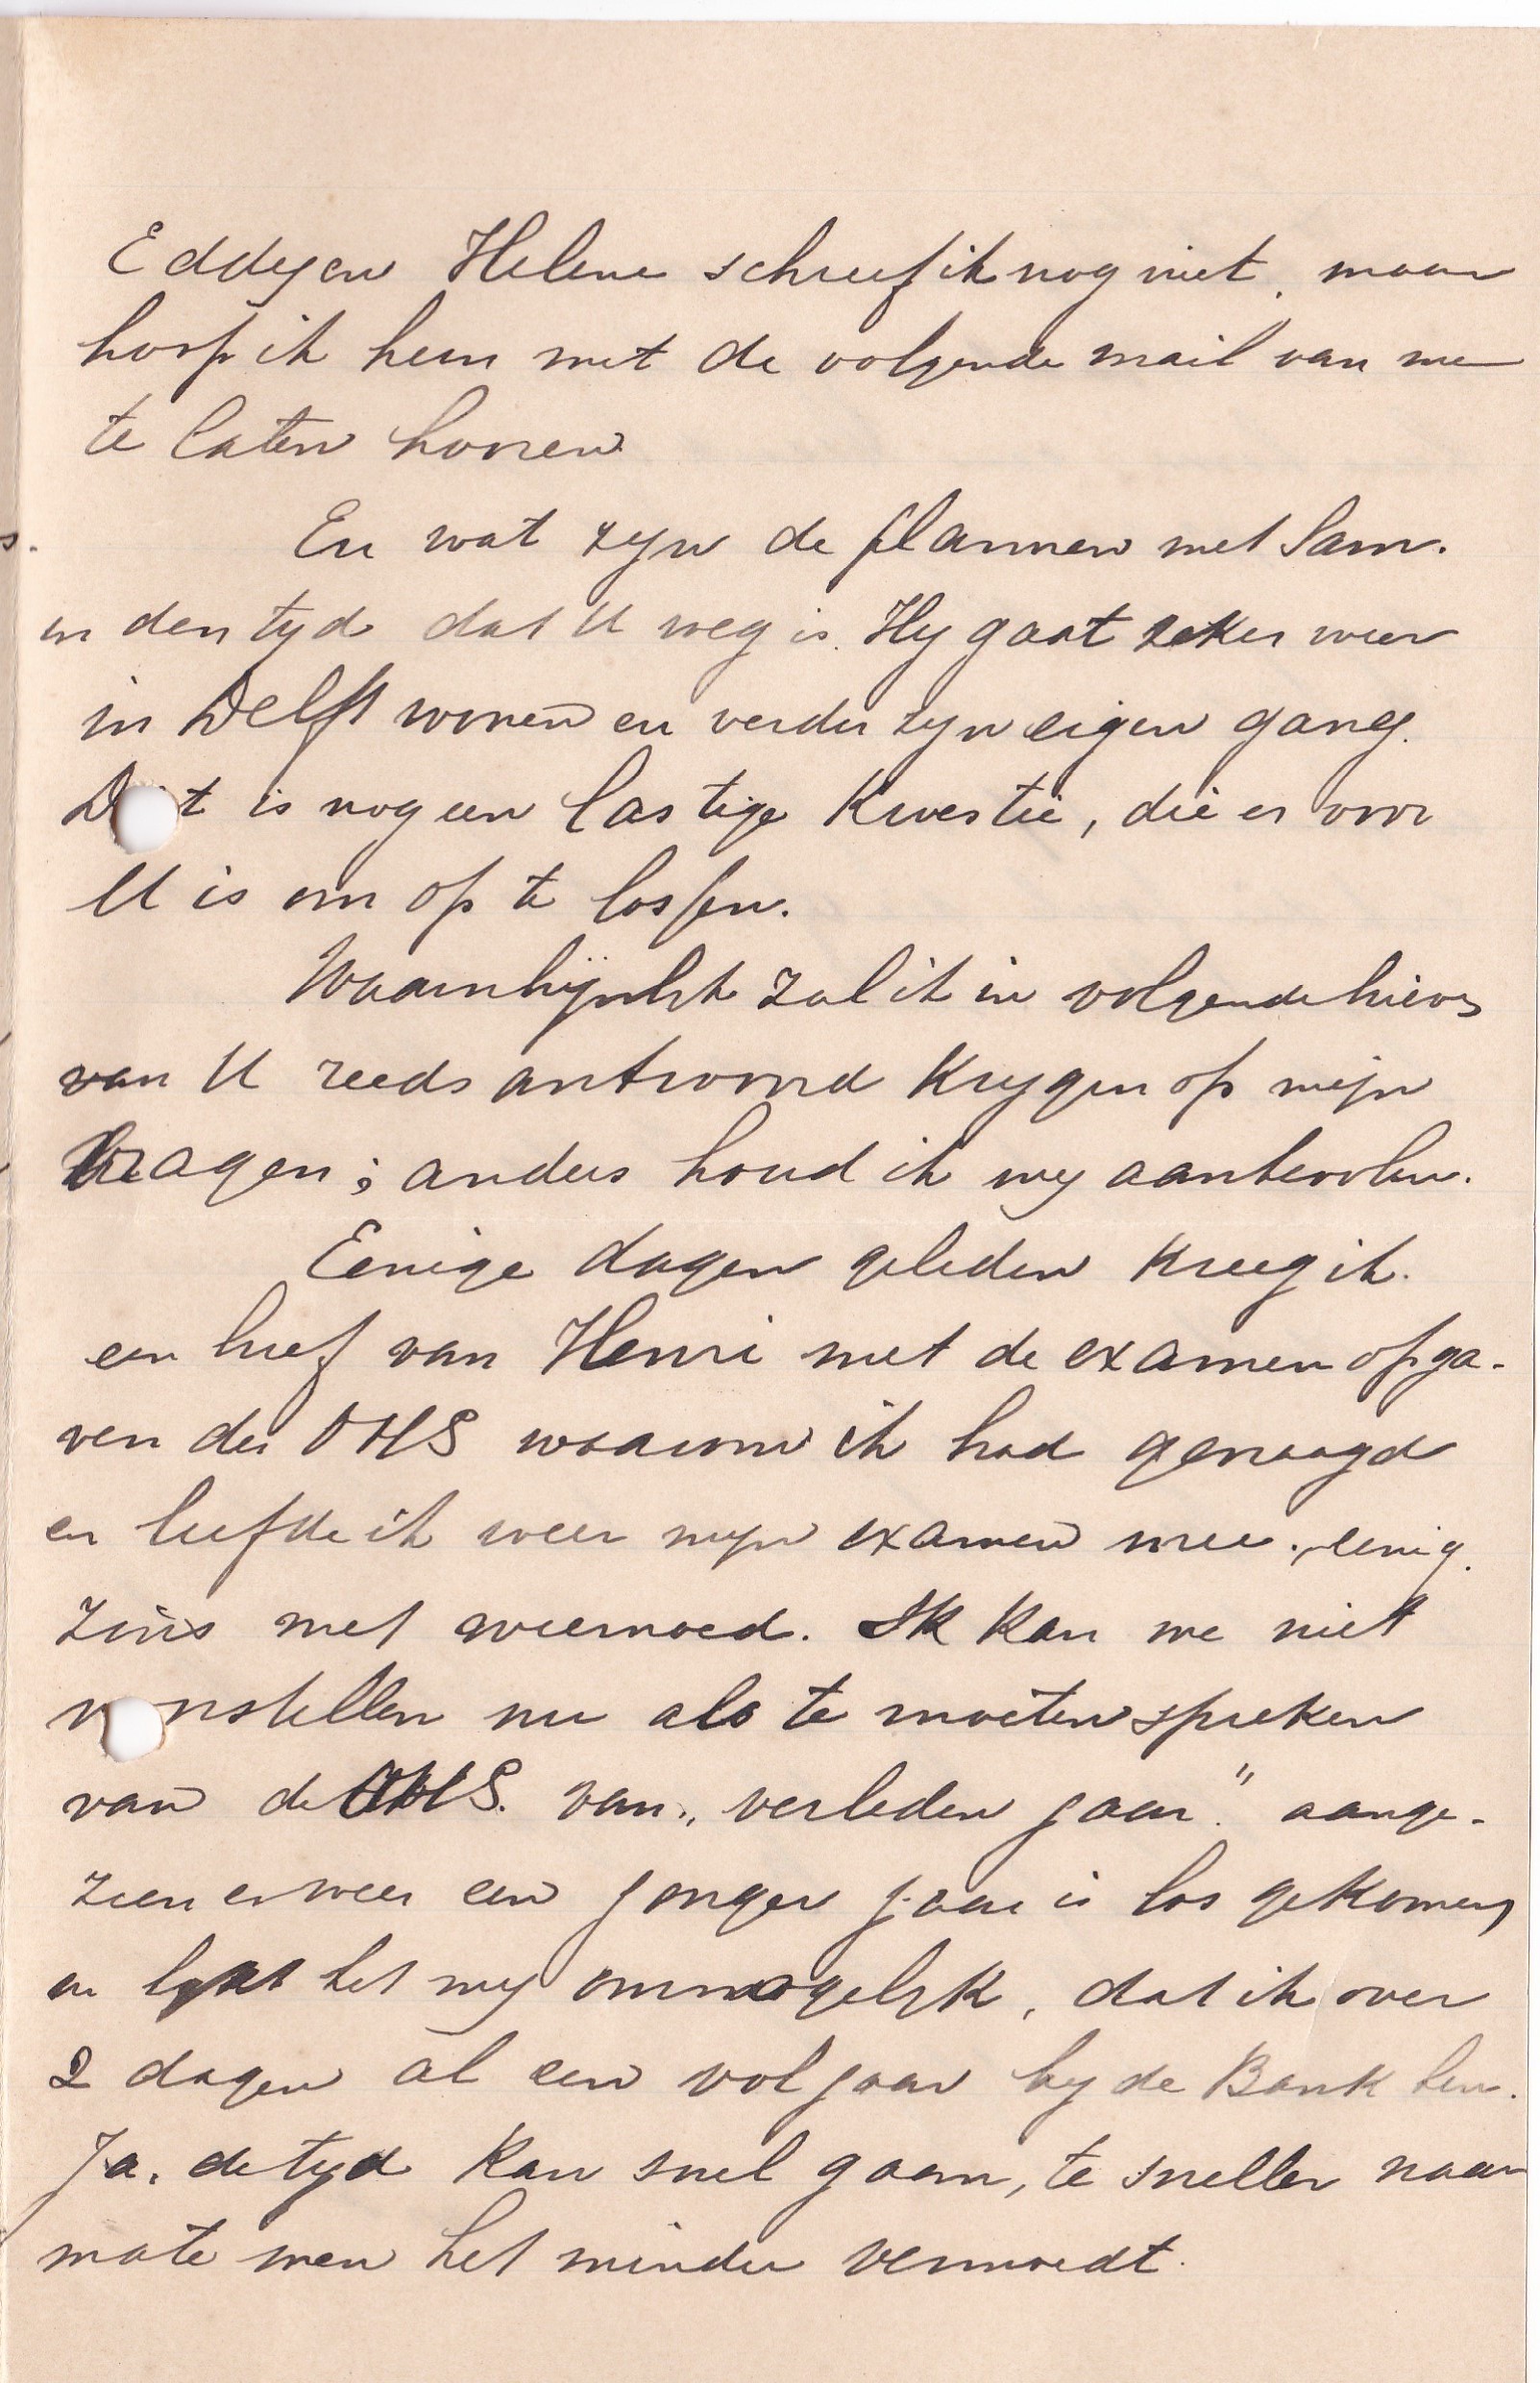 Eddy en Helene schreef ik nog niet, maar
hoop ik hem met de volgende mail van me
te laten hooren
En wat zijn de plannen met Sam.
in den tijd dat U weg is. Hij gaat zeker weer
in Delft wonen en verder zijn eigen gang.
Dat is nog een lastige kwestie, die er voor
U is om op te lossen.
Waarschijnlijk zal ik in volgende brieven
van U reeds antwoord krijgen op mijn
vragen; anders houd ik mij aanbevolen.
Eenige dagen geleden kreeg ik.
een brief van Henri met de examen opga-
ven der OHS waarom ik had gevraagd
en leefde ik weer mijn examen mee, eenig.
zins met weemoed. Ik kan me niet
voorstellen nu als te moeten spreken
van de OHS. van „verleden jaar." aange-
zien er weer een jonger jaar is los gekomen,
en lijkt het mij onmogelijk, dat ik over
2 dagen al een vol jaar bij de Bank ben.
Ja, de tijd kan snel gaan, te sneller naar
mate men het minder vermoedt.